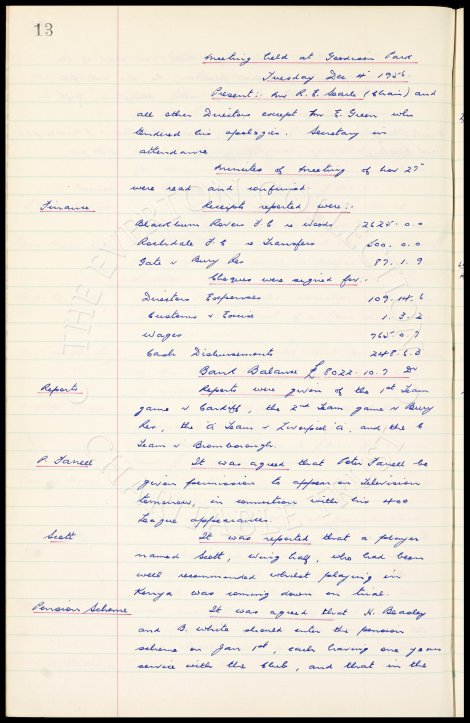 13
Meeting held at Goodison Park
Tuesday Dec 4th 1956.
Present:- Mr R. E. Searle (Chair) and
all other Directors except Mr E. Green who
tendered his apologies. Secretary in
attendance
Minutes of Meeting of Nov 27th
were read and confirmed.
Finance Receipts reported were:-
Blackburn Rovers F.C re Woods 2625. 0. 0
Rochdale F.C re Transfers 500. 0. 0
Gate v Bury Res 87. 1. 9
Cheques were signed for:-
Directors Expenses 109. 14. 6
Customs & Excise 1. 3. 2
Wages 765. 0. 7
Cash Disbursements 248. 6. 3
Bank Balance £ 8022. 10. 7 Dr
Reports Reports were given of the 1st Team
game v Cardiff, the 2nd Team game v Bury
Res, the 'A' Team v Liverpool 'A', and the 'B'
Team v Bromborough.
P. Farrell It was agreed that Peter Farrell be
given permission to appear on Television
tomorrow, in connection with his 400
League appearances.
Scott It was reported that a player
named Scott, wing half, who had been
well recommended whilst playing in
Kenya was coming down on trial.
Pension Scheme It was agreed that H. Beasley
and B. White should enter the pension
scheme on Jan 1st, each having one years
service with the Club, and that in the
THE EVERTON COLLECTION
CHARITABLE